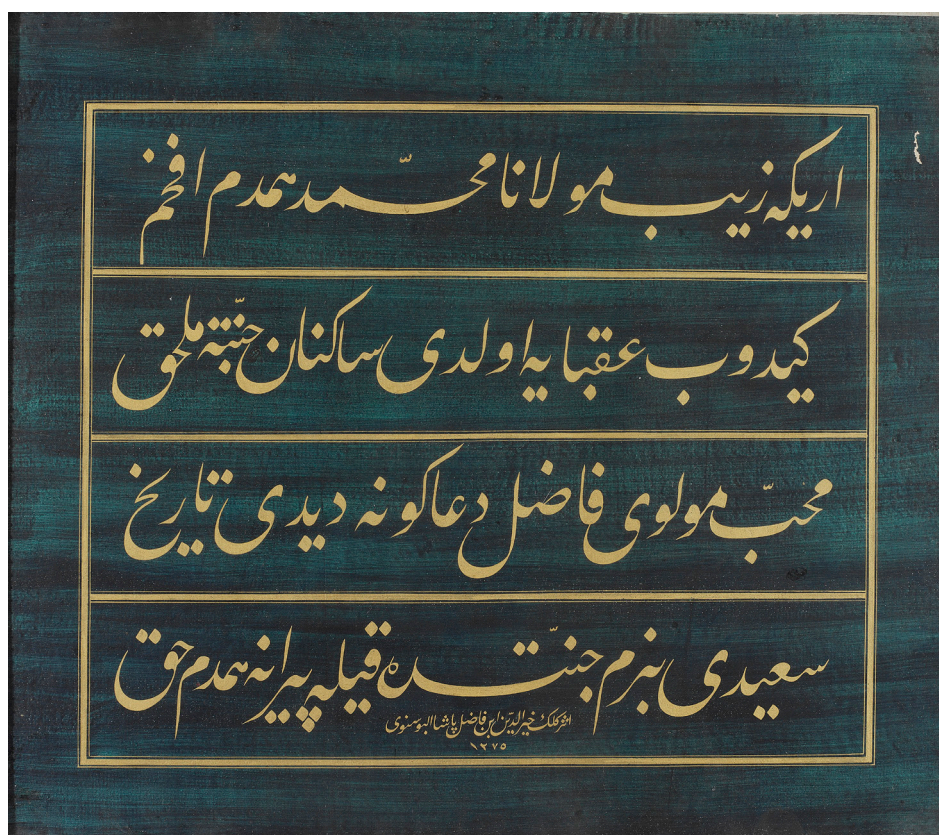 اریکه زیب مولانا محمّد همدم افخم
کیدوب عقبایه اولدی ساکنان جنّته ملحق
محبّ مولوی فاضل دعاکونه دیدی تاریخ
سعیدی بزم جنّتده قیله پیرانه همدم حق
اثر کلک خیر الدّین ابن فاضل پاشا البوسنوی
١٢٧٥